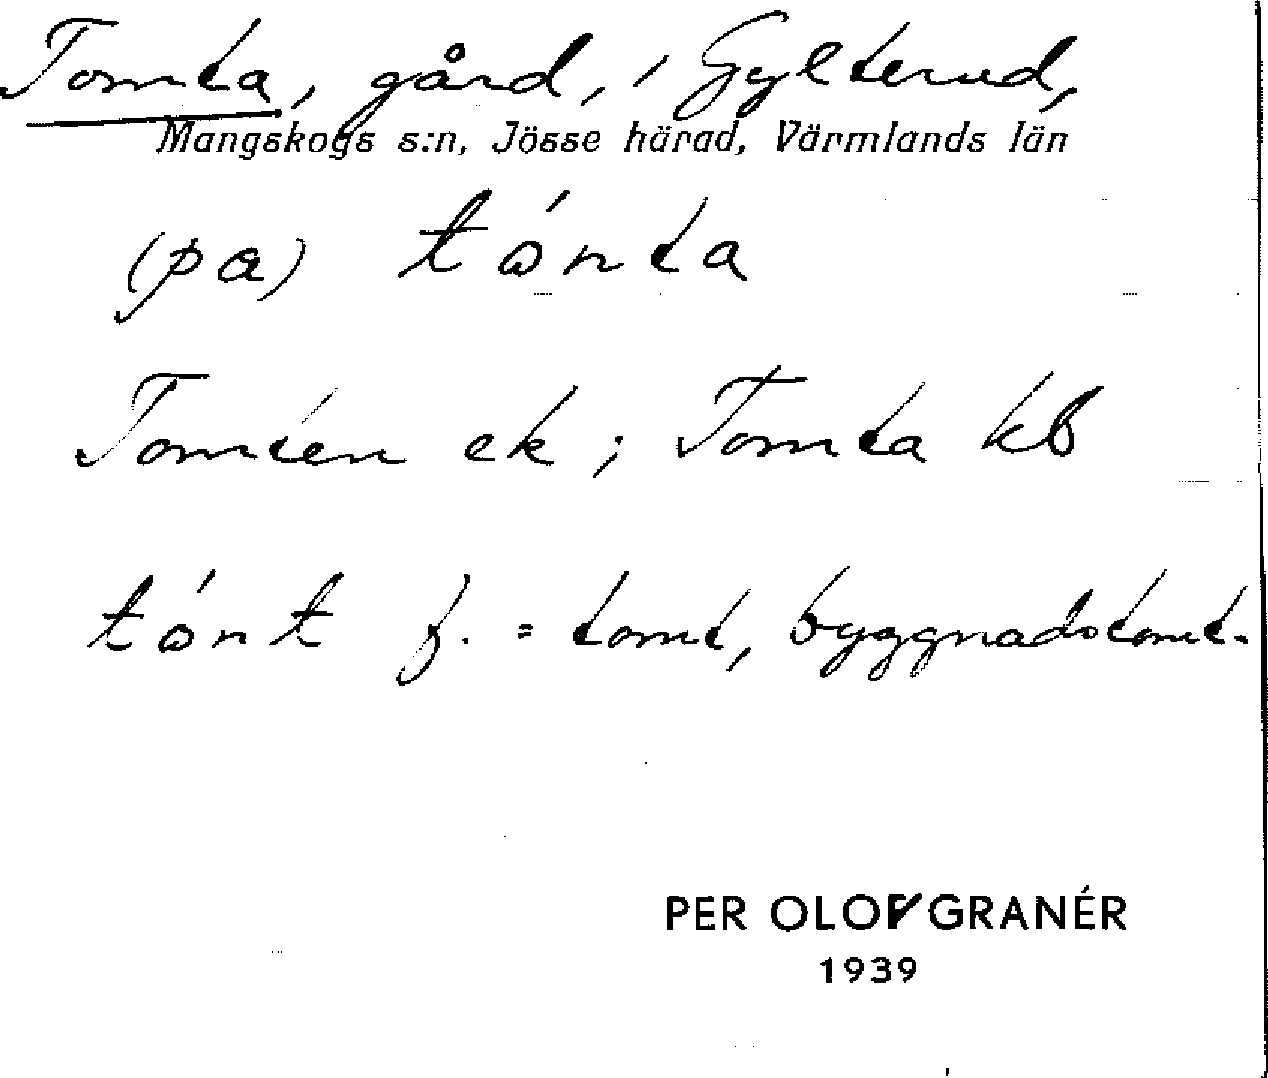 Tomta, gård, i Gylterud,
Mangskogs s:n, Jösse härad, Värmlands län
(pa) tónta
Tomten ek; Tomta kb
tónt f. = tomt, byggnadstomt.
PER OLOV GRANÉR
1939